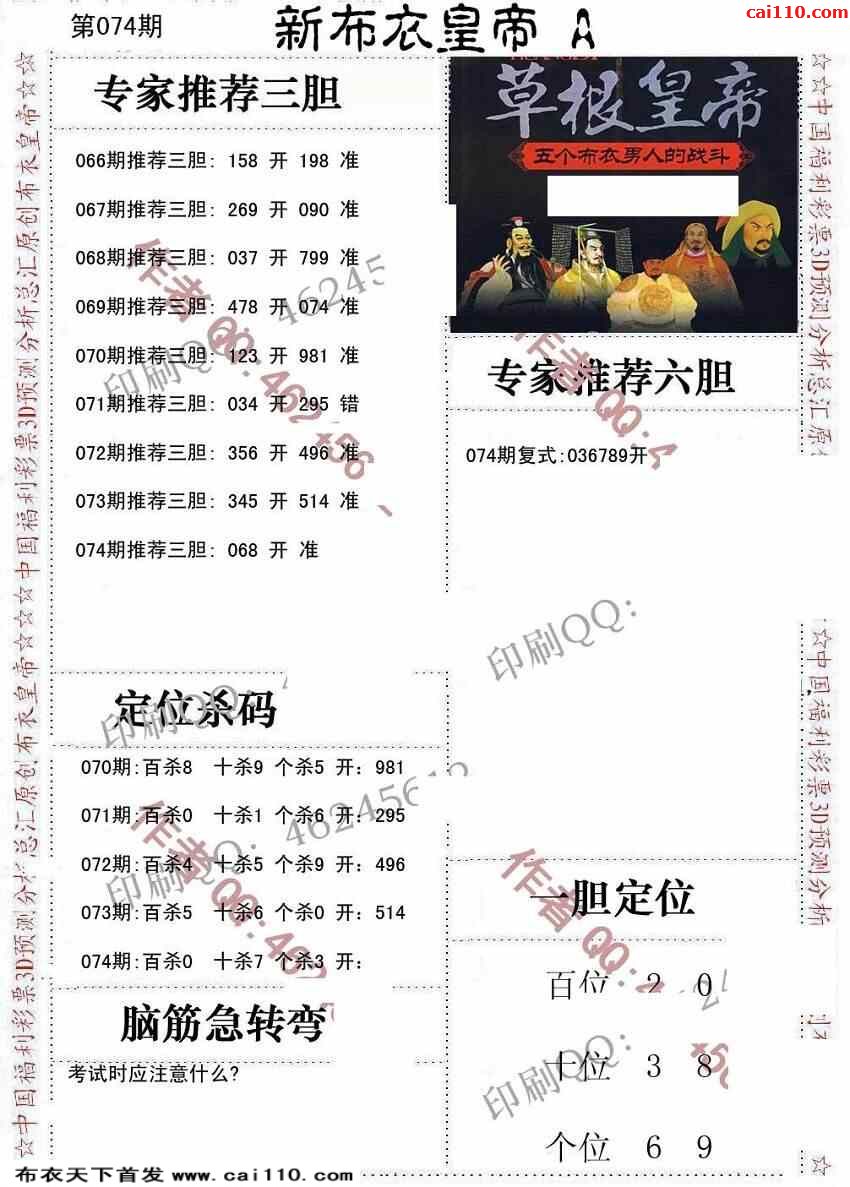 cai110.com
第074期
新布衣皇帝 A
专家推荐三胆
066期推荐三胆: 158 开 198 准
067期推荐三胆: 269 开 090 准
068期推荐三胆: 037 开 799 准
069期推荐三胆: 478 开 074 准
070期推荐三胆: 123 开 981 准
071期推荐三胆: 034 开 295 错
072期推荐三胆: 356 开 496 准
073期推荐三胆: 345 开 514 准
074期推荐三胆: 068 开 准
草根皇帝
五个布衣男人的战斗
专家推荐六胆
074期复式:036789开
定位杀码
070期:百杀8 十杀9 个杀5 开: 981
071期:百杀0 十杀1 个杀6 开: 295
072期:百杀4 十杀5 个杀9 开: 496
073期:百杀5 十杀6 个杀0 开: 514
074期:百杀0 十杀7 个杀3 开:
脑筋急转弯
考试时应注意什么?
一胆定位
百位 2 0
十位 3 8
个位 6 9
☆中国福利彩票3D预测分析总汇原创布衣皇帝☆☆☆中国福利彩票3D预测分析总汇原创布衣皇帝☆☆
☆☆中国福利彩票3D预测分析总汇原
☆中国福利彩票3D预测分析
印刷QQ: 46245
作者QQ:462
印刷QQ:
布衣天下首发 www.cai110.com